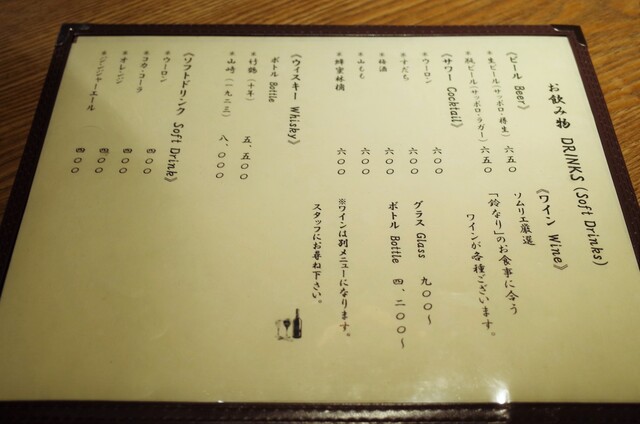 お飲み物 DRINKS (Soft Drinks)
《ビール Beer》
＊生ビール（サッポロ・樽生） 六五〇
＊瓶ビール（サッポロ・ラガー） 六五〇
《サワー Cocktail》
＊ウーロン 六〇〇
＊すだち 六〇〇
＊梅酒 六〇〇
＊山もも 六〇〇
＊蜂蜜林檎 六〇〇
《ウイスキー Whisky》
ボトル Bottle
＊竹鶴（十年） 五、五〇〇
＊山崎（一九二三） 八、〇〇〇
《ソフトドリンク Soft Drink》
＊ウーロン 四〇〇
＊コカ・コーラ 四〇〇
＊オレンジ 四〇〇
＊ジンジャーエール 四〇〇
《ワイン Wine》
ソムリエ厳選
「鈴なり」のお食事に合う
ワインが各種ございます。
グラス Glass 九〇〇〜
ボトル Bottle 四、二〇〇〜
※ワインは別メニューになります。
スタッフにお尋ね下さい。